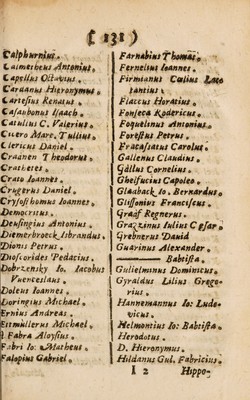 ( 131 )
Calphurnius.
Calmetheus Antonius.
Capellus Octavius.
Cardanus Hieronymus.
Cartesius Renatus.
Casaubonus Isaach.
Catullus C. Valerius.
Cicero Marc. Tullius.
Clericus Daniel.
Craanen Theodorus.
Crathetes.
Crato Ioannes.
Crugerus Daniel.
Crysosthomus Ioannes.
Democritus.
Deusingius Antonius.
Diemerbroeck Isbrandus.
Dionis Petrus.
Dioscorides Pedacius.
Dobrzensky Io. Iacobus
Vuenceslaus.
Doleus Ioannes.
Doringius Michael.
Ernius Andreas.
Ettmullerus Michael.
Fabra Aloysius.
Fabri Io: Matheus.
Falopius Gabriel.
Farnabius Thomas.
Fernelius Ioannes.
Firmianus Cœlius Lac
tantius.
Flaccus Horatius.
Fonseca Rodericus.
Foquelinus Antonius.
Forestus Petrus.
Fracasiatus Carolus.
Gallenus Claudius.
Gallus Cornelius.
Gheifucius Capoleo.
Gladback Io. Bernardus.
Glissonius Franciscus.
Graaf Regnerus.
Grazzinus Iulius Cesar
Grebnerus David
Guarinus Alexander.
Babtista.
Gulielminus Dominicus.
Gyraldus Lilius Grego-
rius.
Hannemannus Io: Ludo-
vicus.
Helmontius Io: Babtista.
Herodotus.
D. Hieronymus.
Hildanus Gul. Fabricius.
I 2 Hippo-